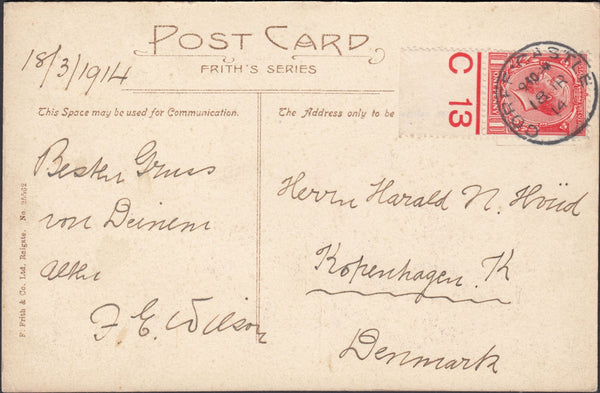 POST CARD
FRITH'S SERIES
18/3/1914
This Space may be used for Communication.
The Address only to be
C 13
CORFE-CASTLE
18 MR
14
Besten Gruss
von Deinem
alten
F. E. Wilson
Herrn Harald N. Hviid
Kopenhagen. K
Denmark
F. Frith & Co. Ltd., Reigate. No.